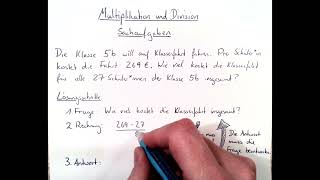 Multiplikation und Division
Sachaufgaben
Die Klasse 5b will auf Klassenfahrt fahren. Pro Schüler*in
kostet die Fahrt 269 €. Wie viel kostet die Klassenfahrt
für alle 27 Schüler*innen der Klasse 5b insgesamt?
Lösungsschritte:
1. Frage: Wie viel kostet die Klassenfahrt insgesamt?
2. Rechnung: 269 · 27
Die Antwort
muss die
Frage beantworten.
3. Antwort: